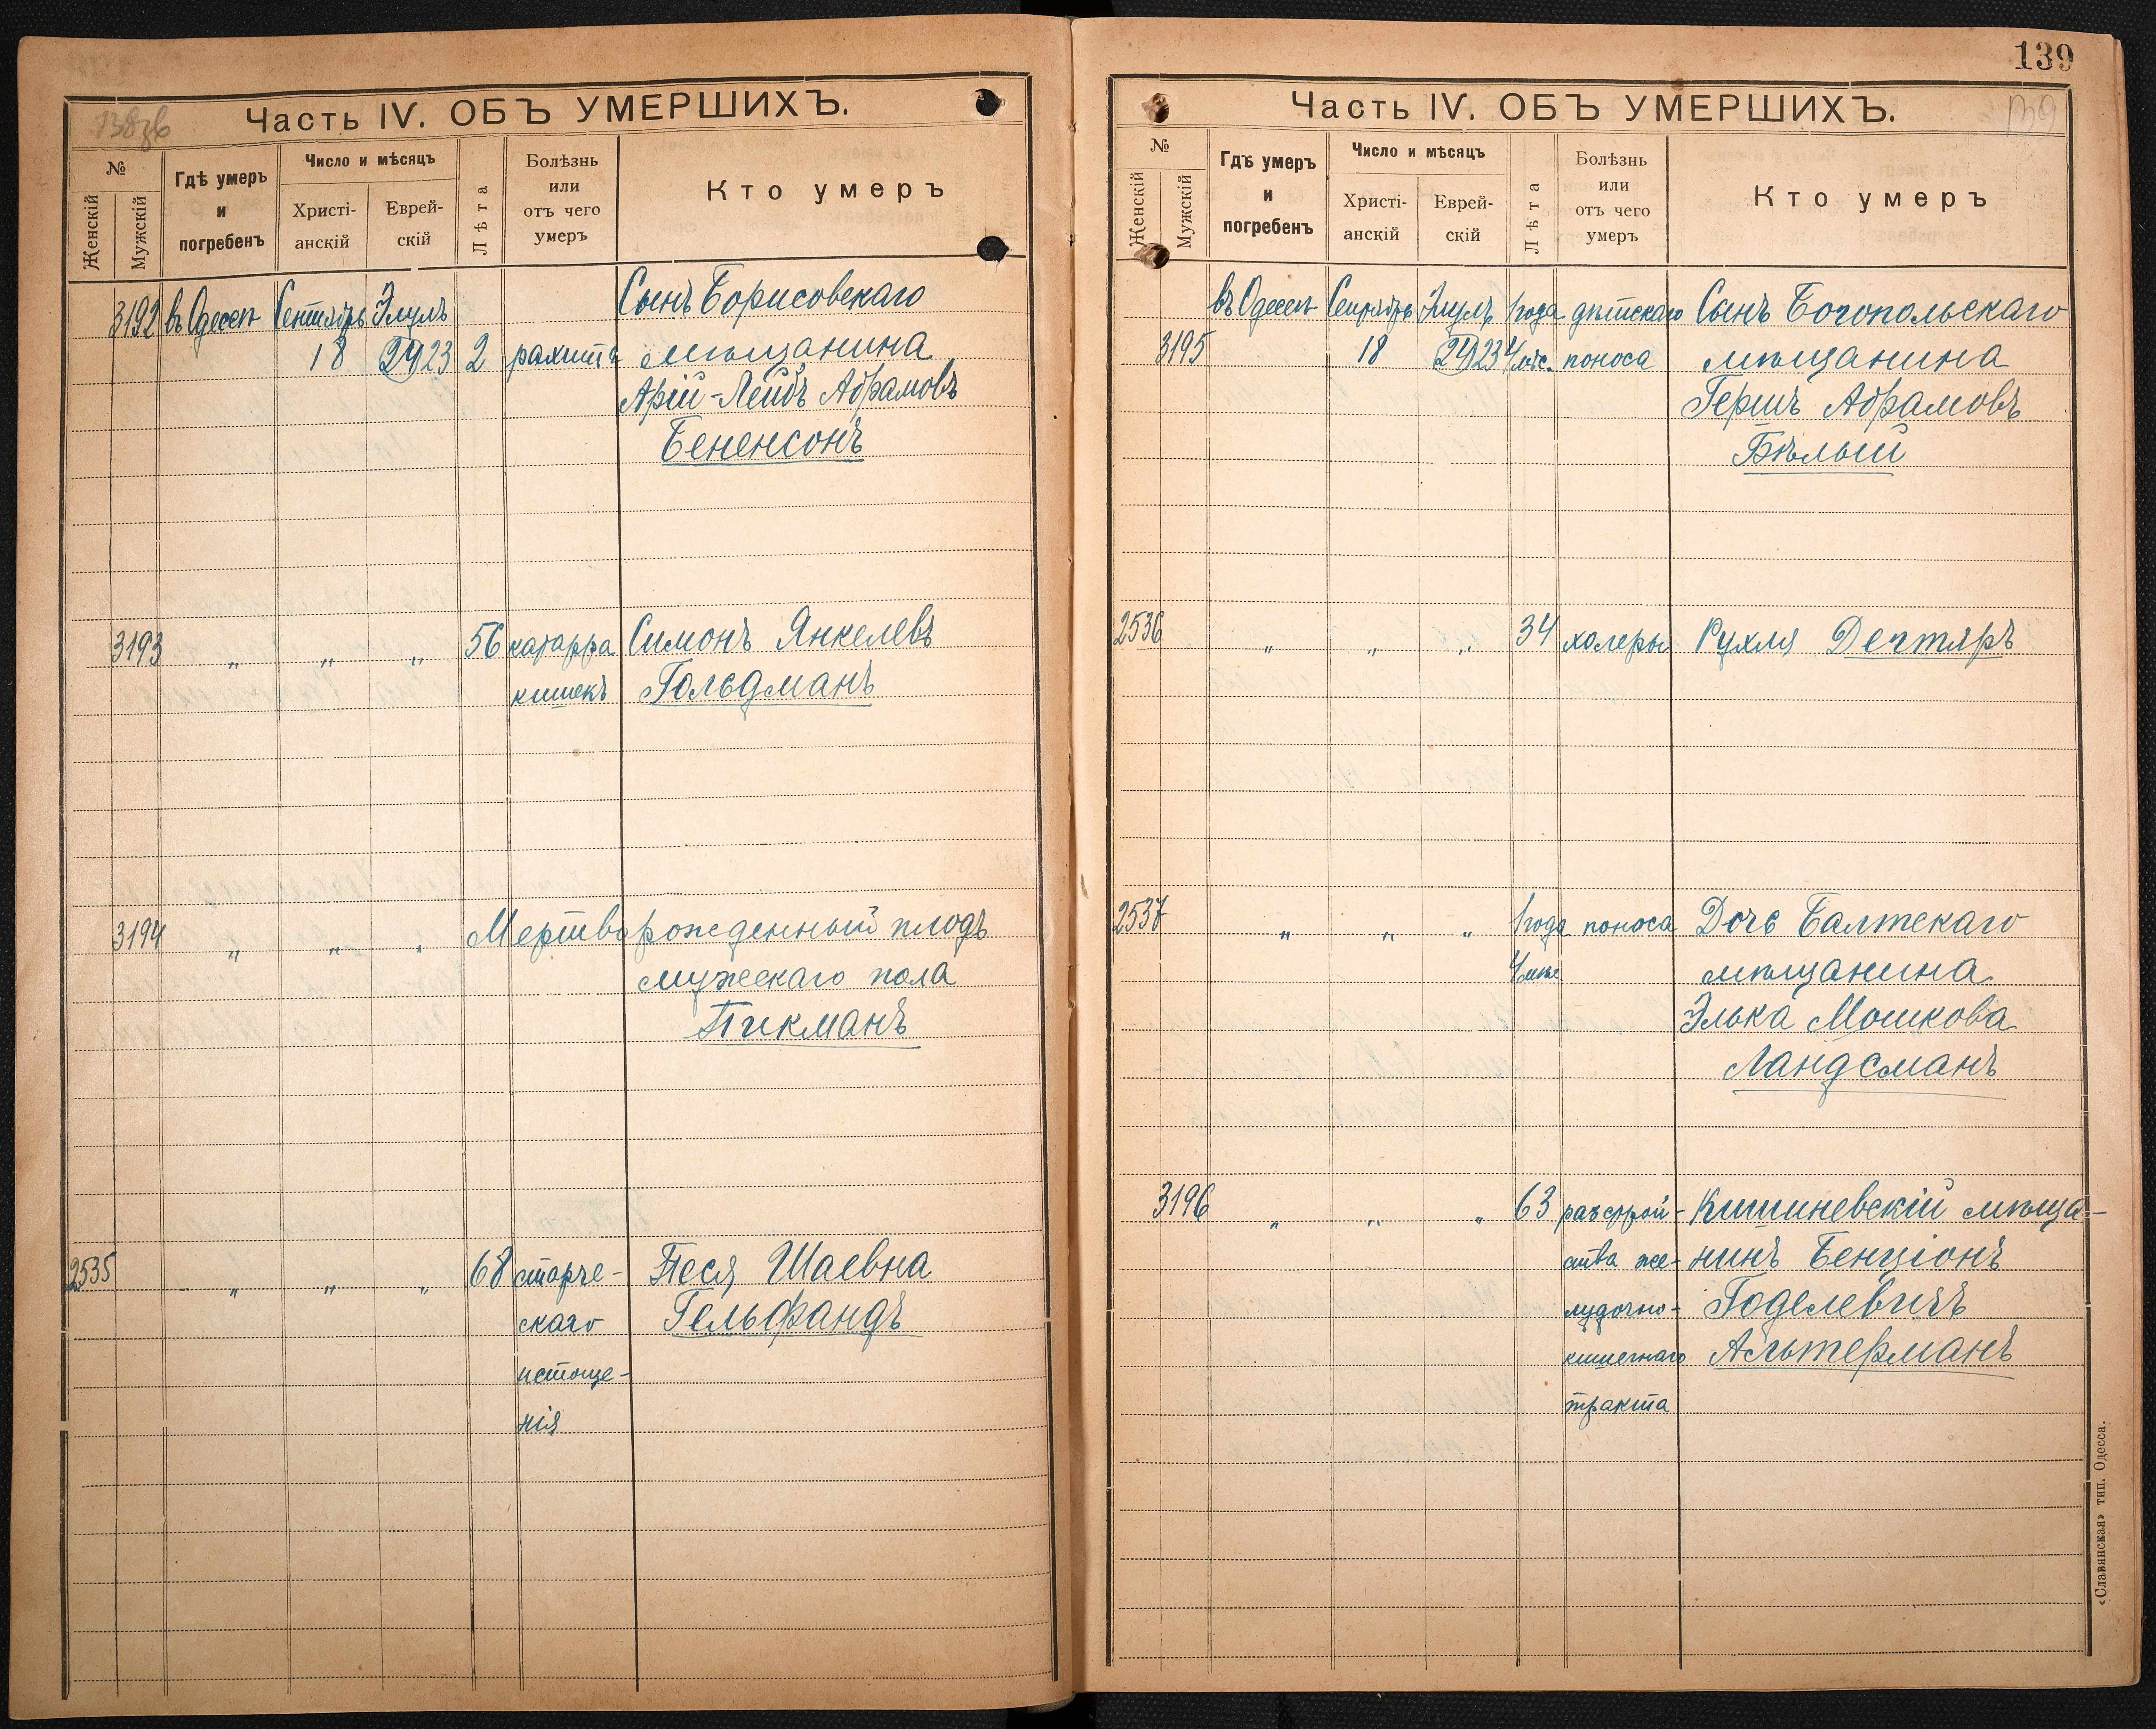 138об
Часть IV. ОБЪ УМЕРШИХЪ.
№
Женскій
Мужскій
Гдѣ умеръ
и
погребенъ
Число и мѣсяцъ
Христі-
анскій
Еврей-
скій
Лѣта
Болѣзнь
или
отъ чего
умеръ
Кто умеръ
3192 въ Одессѣ Сентябрь Элулъ Сынъ Борисовскаго
18 (24) 23 2 рахита мѣщанина
Арій-Лейбъ Абрамовъ
Бененсонъ
3193 " " " 56 катарра Симонъ Янкелевъ
кишекъ Гольдманъ
3194 " " " Мертворожденный плодъ
мужескаго пола
Пикманъ
2535 " " " 68 старче- Песя Шаевна
скаго Гельфандъ
истоще-
нія
139
Часть IV. ОБЪ УМЕРШИХЪ.
139
№
Женскій
Мужскій
Гдѣ умеръ
и
погребенъ
Число и мѣсяцъ
Христі-
анскій
Еврей-
скій
Лѣта
Болѣзнь
или
отъ чего
умеръ
Кто умеръ
въ Одессѣ Сентябрь Элулъ 1 года дѣтскаго Сынъ Богопольскаго
3195 18 (24) 23 4 мѣс. поноса мѣщанина
Гершъ Абрамовъ
Бѣлый
2536 " " " 34 холеры Рухля Дечтяръ
2537 " " " 1 года поноса Дочь Балтскаго
4 мѣс мѣщанина
Элька Мошкова
Ландсманъ
3196 " " " 63 разстрой- Кишиневскій мѣща-
ства же- нинъ Бенціонъ
лудочно- Годелевичъ
кишечнаго Альтерманъ
тракта
«Славянская» тип. Одесса.